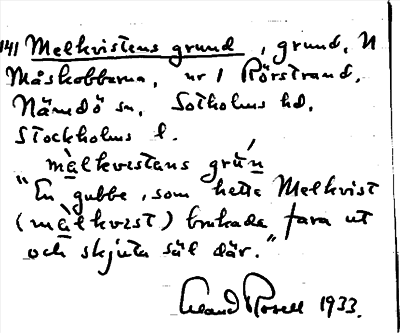 141 Melkvistens grund, grund, N
Måskobbarna, nr 1 Rörstrand,
Nämdö sn, Sotholms hd,
Stockholms l.
mèlkvestens grún
"En gubbe, som hette Melkvist
(mèlkvest) brukade fara ut
och skjuta säl där."
Rosell 1933.